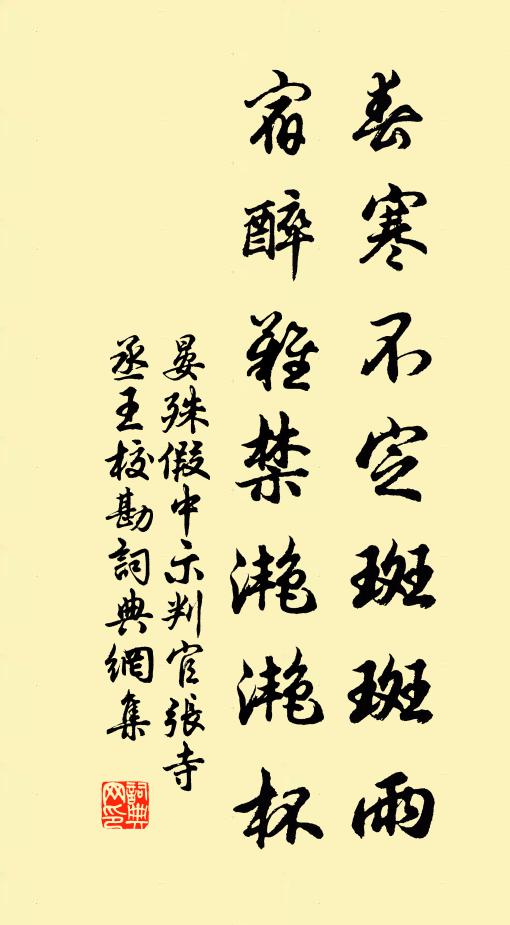 春寒不定斑斑雨
宿醉難禁灔灔杯
晏殊假中示判官張寺
丞王校勘詞典網集
詞典网印